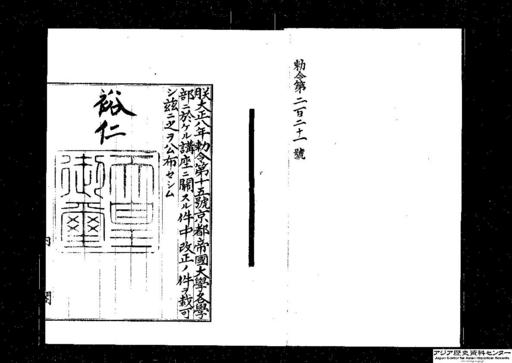 勅令第二百二十一號
朕大正八年勅令第十五號京都帝國大學各學
部ニ於ケル講座ニ關スル件中改正ノ件ヲ裁可
シ玆ニ之ヲ公布セシム
裕仁
天皇御璽
内閣
アジア歴史資料センター
Japan Center for Asian Historical Records